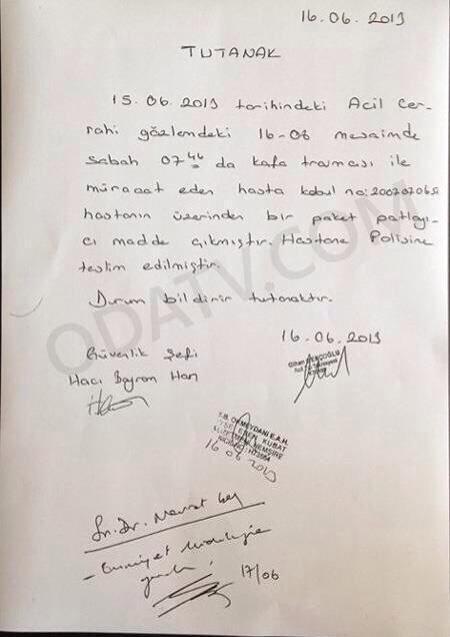 16.06.2013
TUTANAK
15.06.2013 tarihindeki Acil Cer-
rahi gözlemdeki 16-08 mesaimde
sabah 07 44 da kafa travması ile
müracaat eden hasta kabul no: 200707065
hastanın üzerinden bir paket patlayı-
cı madde çıkmıştır. Hastane Polisine
teslim edilmiştir.
Durum bildirir tutanaktır.
16.06.2013
Güvenlik Şefi
Hacı Bayram Han
ODATV.COM
S.B. OKMEYDANI E.A.H.
KUBAT
HEMŞİRE
16 06 2013
Sn. Dr. Nevzat bey
17/06